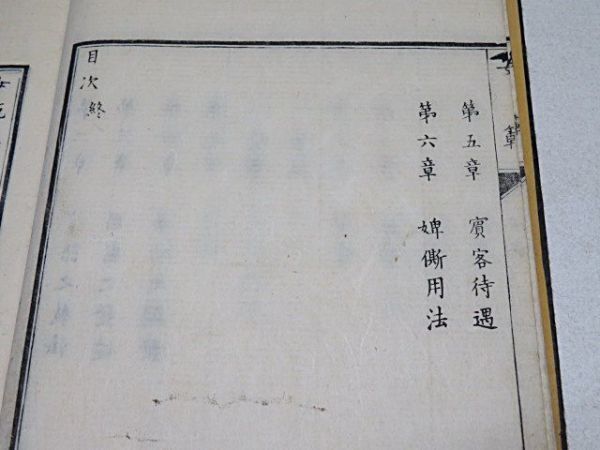 女範
第五章 賓客待遇
第六章 婢僕用法
目次終
女範